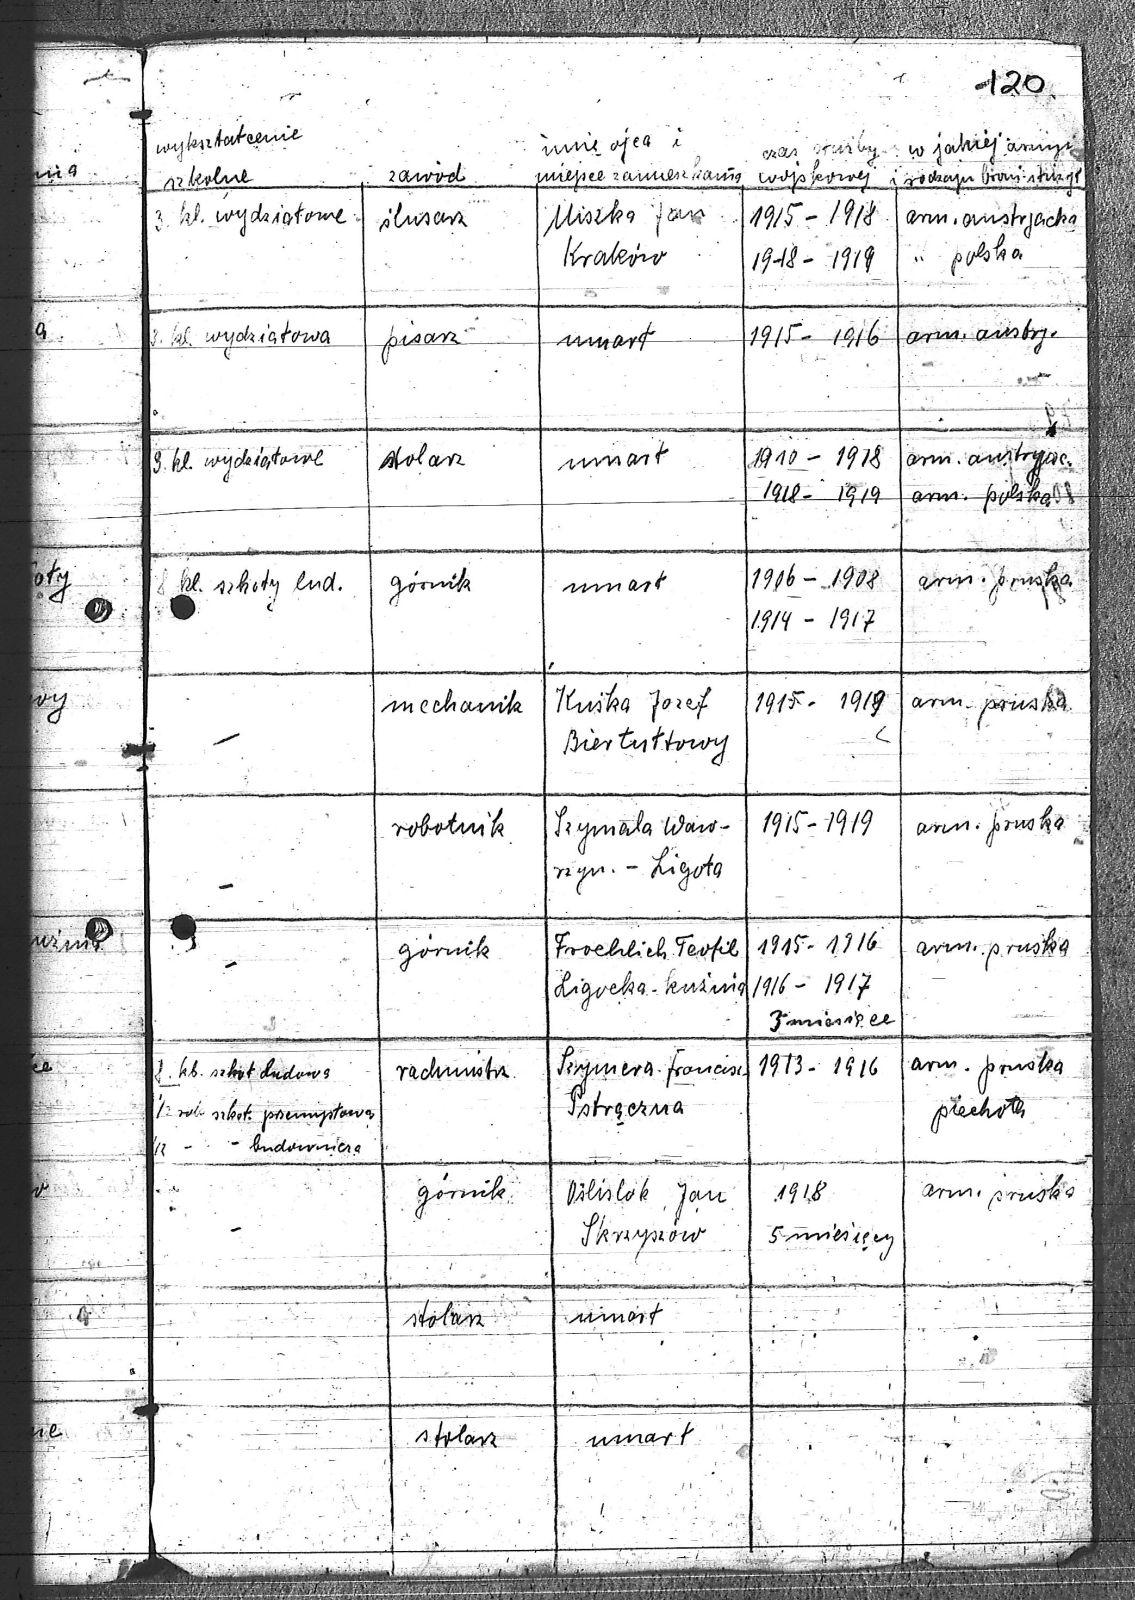 120.
wykształcenie szkolne
zawód
imię ojca i miejsce zamieszkania
czas służby wojskowej
w jakiej armji i rodzaju broni służył
3. kl. wydziałowe ślusarz Miszka Jan 1915 - 1918 arm. austrjacka
Kraków 1918 - 1919 " polska
3. kl. wydziałowa pisarz umarł 1915 - 1916 arm. austrj.
3. kl. wydziałowe stolarz umarł 1910 - 1918 arm. austryjac.
1918 - 1919 arm. polska
8 kl. szkoły lud. górnik umarł 1906 - 1908 arm. pruska
1914 - 1917
oły
- mechanik Kuśka Jozef 1915 - 1919 arm. pruska
owy
Biertułtowy
robotnik Szymala Waw- 1915 - 1919 arm. pruska
- rzyn. - Ligota
uźnia
- górnik Froehlich Teofil 1915 - 1916 arm. pruska
Ligocka-kuźnia 1916 - 1917
3 miesiące
8. kl. szkoł ludowa rachmistrz Szymera Francisz 1913 - 1916 arm. pruska
1/2 rok szkoł. przemysłowa Pstrączna piechota
1/2 - - budownicza
- górnik Oślislok Jan 1918 arm. pruska
Skrzyszów 5 miesięcy
stolarz umarł
stolarz umarł